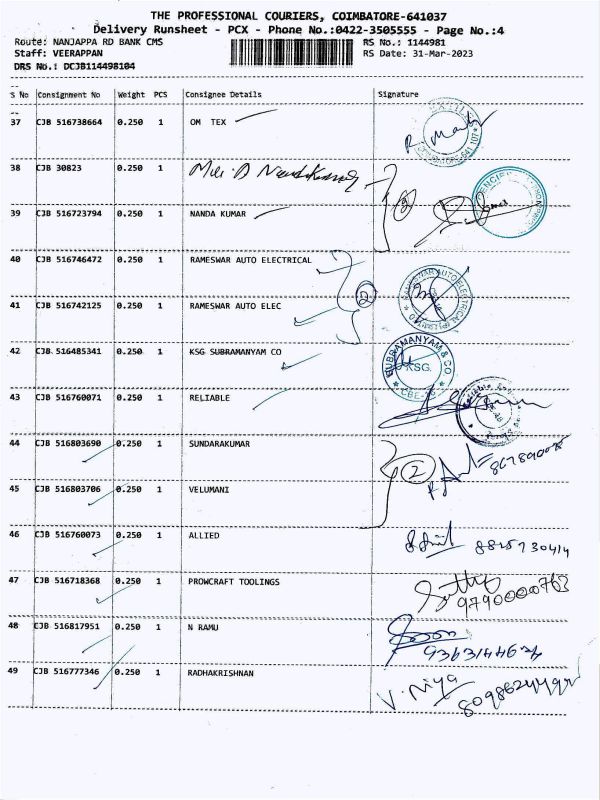 THE PROFESSIONAL COURIERS, COIMBATORE-641037
Delivery Runsheet - PCX - Phone No.:0422-3505555 - Page No.:4
Route: NANJAPPA RD BANK CMS RS No.: 1144981
Staff: VEERAPPAN RS Date: 31-Mar-2023
DRS No.: DCJB114498104
S No Consignment No Weight PCS Consignee Details Signature
37 CJB 516738664 0.250 1 OM TEX
38 CJB 30823 0.250 1
39 CJB 516723794 0.250 1 NANDA KUMAR
40 CJB 516746472 0.250 1 RAMESWAR AUTO ELECTRICAL
2
41 CJB 516742125 0.250 1 RAMESWAR AUTO ELEC
42 CJB 516485341 0.250 1 KSG SUBRAMANYAM CO
SUBRAMANYAM & CO
KSG.
43 CJB 516760071 0.250 1 RELIABLE
44 CJB 516803690 0.250 1 SUNDARAKUMAR
2
45 CJB 516803706 0.250 1 VELUMANI
46 CJB 516760073 0.250 1 ALLIED
47 CJB 516718368 0.250 1 PROWCRAFT TOOLINGS
9790000763
48 CJB 516817951 0.250 1 N RAMU
49 CJB 516777346 0.250 1 RADHAKRISHNAN
V. Niya